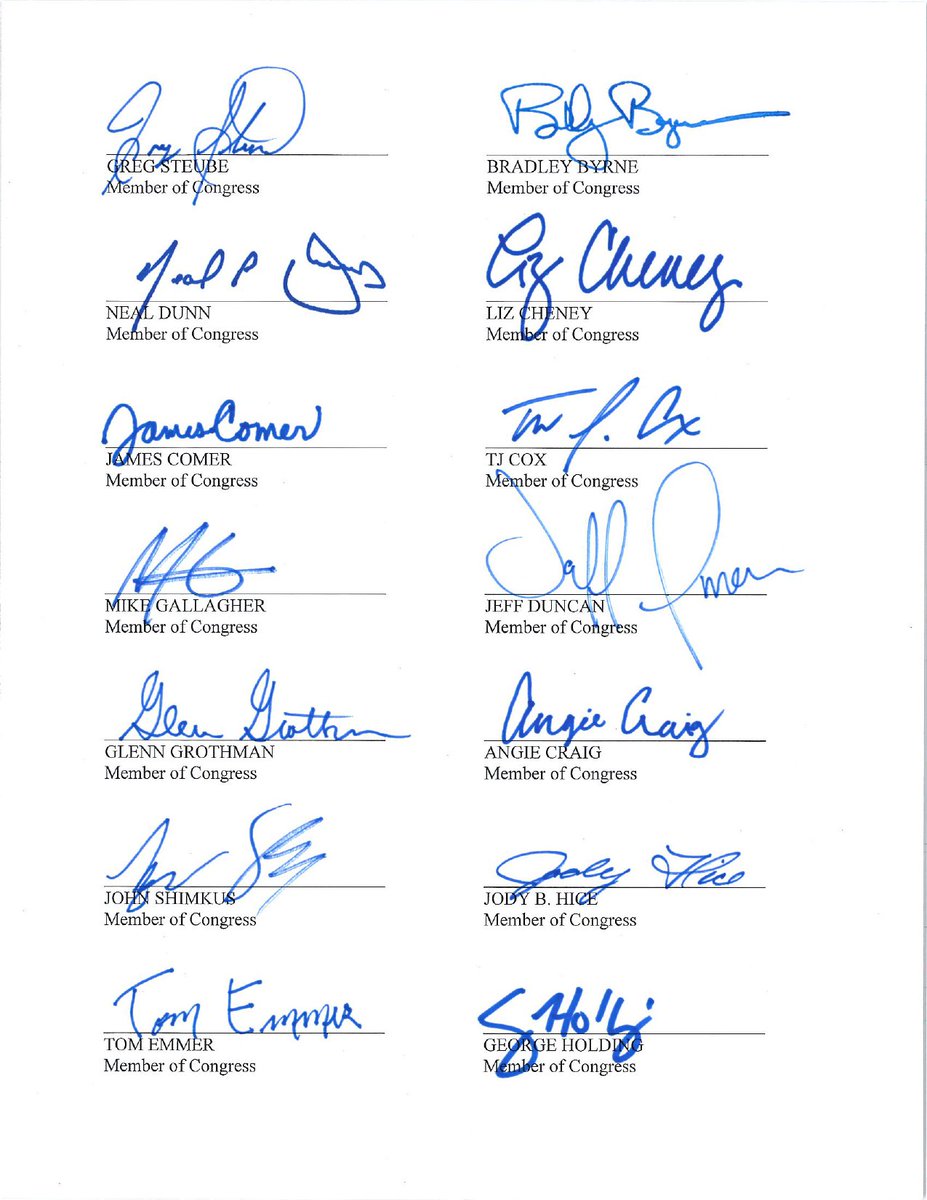 Greg Steube
GREG STEUBE
Member of Congress
Bradley Byrne
BRADLEY BYRNE
Member of Congress
Neal P Dunn
NEAL DUNN
Member of Congress
Liz Cheney
LIZ CHENEY
Member of Congress
James Comer
JAMES COMER
Member of Congress
TJ COX
Member of Congress
MIKE GALLAGHER
Member of Congress
Jeff Duncan
JEFF DUNCAN
Member of Congress
Glenn Grothman
GLENN GROTHMAN
Member of Congress
Angie Craig
ANGIE CRAIG
Member of Congress
JOHN SHIMKUS
Member of Congress
Jody Hice
JODY B. HICE
Member of Congress
Tom Emmer
TOM EMMER
Member of Congress
GEORGE HOLDING
Member of Congress